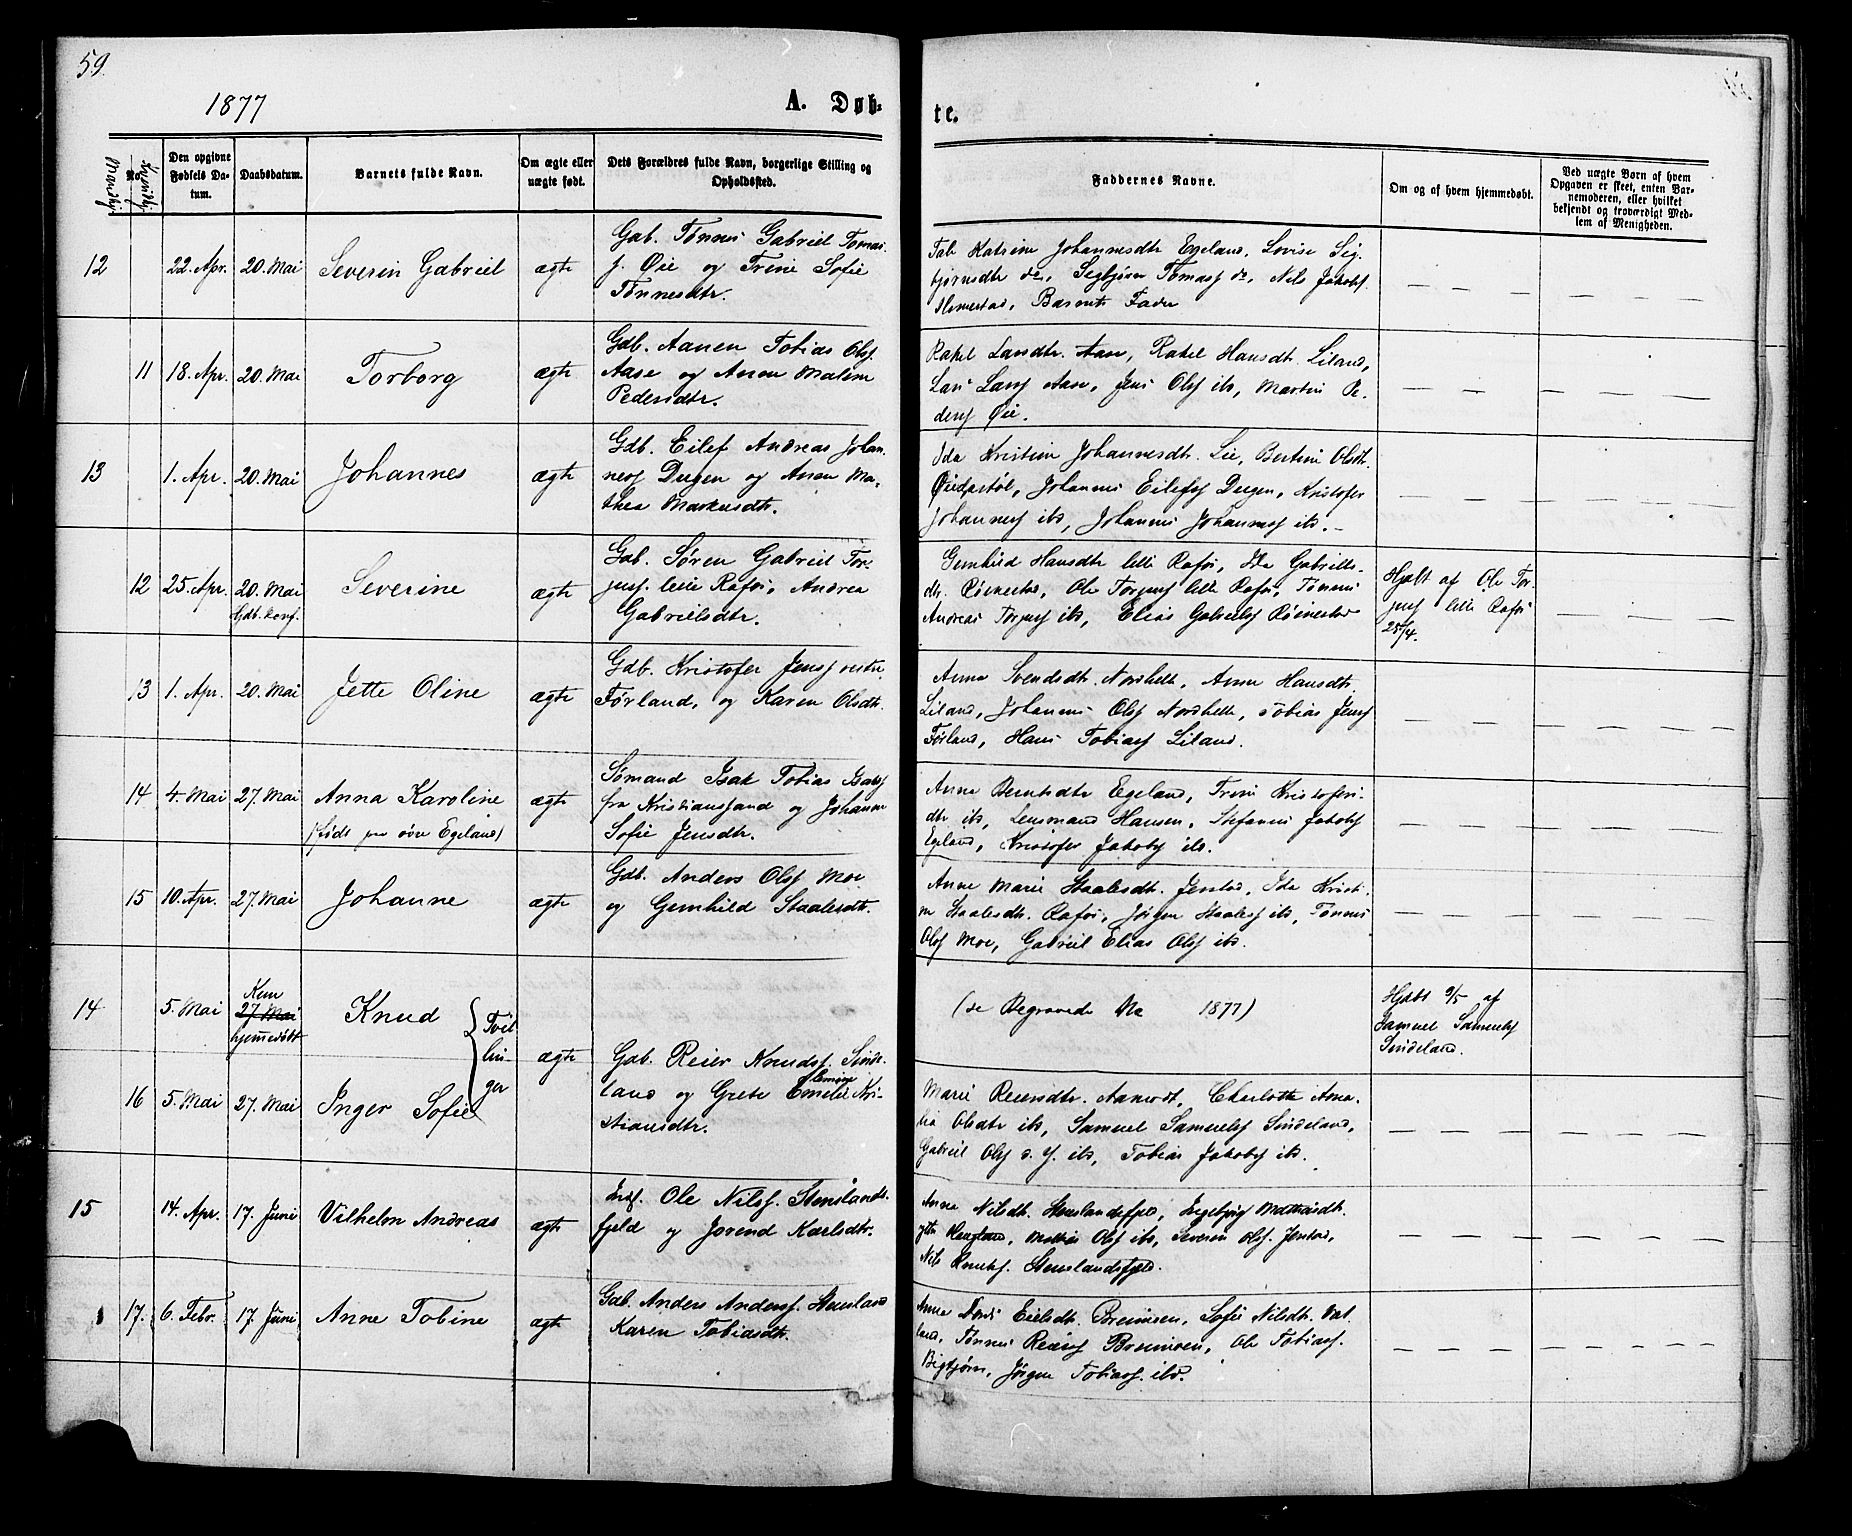 59.
1877
A. Døb-
te.
Mandkj.
No.
Kvindkj.
Den opgivne
Fødsels Da-
tum.
Daabsdatum.
Barnets fulde Navn.
Om ægte eller
uægte født.
Dets Forældres fulde Navn, borgerlige Stilling og
Opholdssted.
Faddernes Navne.
Om og af hvem hjemmedøbt.
Ved uægte Børn af hvem
Opgaven er skeet, enten Bar-
nemoderen, eller hvilket
bekjendt og troværdigt Med-
lem af Menigheden.
12
22. Apr.
20. Mai
Severin Gabriel
ægte
Gab. Tønnes Gabriel Tomas
f. Øie og Trine Sofie
Tønnesdtr.
Tab. Katrine Johannesdtr Egeland, Lovise Sig-
bjørnsdtr do, Sigbjørn Tomass do, Nils Jakobs
Homestad, Barnets Fader
11
18. Apr.
20. Mai
Torborg
ægte
Gdb. Aanen Tobias Ols.
Aase og Anne Malene
Pedersdtr.
Rakel Larsdtr. Aase, Rakel Hansdtr. Liland,
Lars Larss Aase, Jens Olss ibd, Martin Pe-
derss Øie.
13
1. Apr.
20. Mai
Johannes
ægte
Gdb. Eilef Andreas Johan-
ness Dugen og Anne Ma-
thea Markusdtr.
Ida Kristine Johannesdtr. Lie, Bertine Olsdtr.
Johannes Eilefss Dugen, Kristofer
Johanness ibd, Johannes Johanness ibd.
12
25. Apr.
20. Mai
Gdb. konf.
Severine
ægte
Gab. Søren Gabriel Tor-
juss. lille Rafos, Andrea
Gabrielsdtr.
Gunhild Hansdtr lille Rafos, Ida Gabriels-
dtr. Røinestad, Ole Torjuss lille Rafos, Tønnes
Andreas Torjuss ibd, Elias Gabrielss Røinestad
Hjdbt af Ole Tor-
juss lille Rafos
25/4.
13
1. Apr.
20. Mai
Jette Oline
ægte
Gdb. Kristofer Jenss vestre
Førland, og Karen Olsdtr.
Anna Svendsdtr. Nordhelle, Anne Hansdtr.
Liland, Johannes Olss Nordhelle, Tobias Jenss
Førland, Hans Tobiass Liland.
14
4. Mai
27. Mai
Anna Karoline
(født paa øvre Egeland)
ægte
Sømand Isak Tobias Isaks
fra Kristianssand og Johanne
Sofie Jensdtr.
Anne Berntsdtr Egeland, Trine Kristofers-
dtr ibd, Lensmand Hansen, Stefanus Jakobs
Egeland, Kristofer Jakobs ibd.
15
10. Apr.
27. Mai
Johanne
ægte
Gdb. Anders Olss Moe
og Gunhild Staalesdtr.
Anne Marie Staalesdtr. Jerstad, Ida Kristi-
ne Staalesdtr. Rafos, Jørgen Staaless ibd, Tønnes
Olss Moe, Gabriel Elias Olss ibd.
14
5. Mai
Kun
27. Mai
hjemmedøbt
Knud
Tvil-
lin-
ger
ægte
(se Begravede No 1877)
Hjdbt 9/5 af
Samuel Samuelss
Sindeland.
16
5. Mai
27. Mai
Inger Sofie
Gab. Reier Knuds. Sinde-
land og Grete Emelie Kri-
stiansdtr.
Marie Reiersdtr. Aamodt, Charlotte Ama-
lia Olsdtr ibd, Samuel Samuelss Sindeland,
Gabriel Olss s. S. ibd, Tobias Jakobs ibd.
15
14. Apr.
17. Juni
Vilhelm Andreas
ægte
Inds. Ole Nilss. Stenslands-
fjeld og Jorend Karlsdtr.
Anna Nilsdtr. Stenslandsfjeld, Ingeborg Mathiasdtr.
ytre Haugland, Mathias Olss ibd, Severin Olss. Jerstad,
Nils Knuds. Stenslandsfjeld.
17.
6. Febr.
17. Juni
Anne Tobine
ægte
Gdb. Anders Anders. Stensland
Karen Tobiasdtr.
Anna Eielsdtr. Breimoen, Sofie Nilsdtr. Vat-
land, Tønnes Reierss Breimoen, Ole Tobiass.
Bigtjøn, Jørgen Tobiass. ibd.